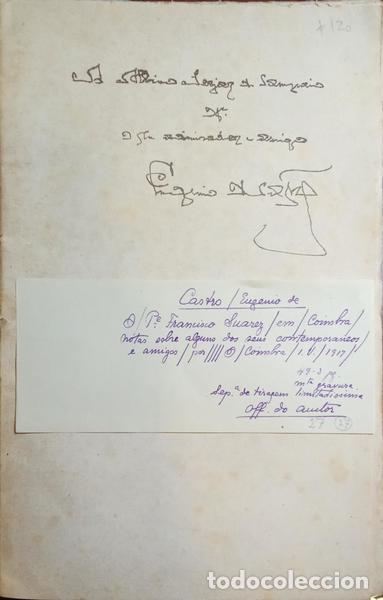 + 120
A Albino Forjaz de Sampaio
of.
o seu admirador e amigo
Eugenio de Castro
Castro / Eugenio de
O / Pe. Francisco Suarez / em / Coimbra /
notas sobre alguns dos seus contemporaneos /
e amigos / por //// O / Coimbra / I. U. / 1917 /
49-3 pg.
mta gravura
Sep.ª de tiragem limitadissima
off. do auctor
27 27
todocoleccion.net